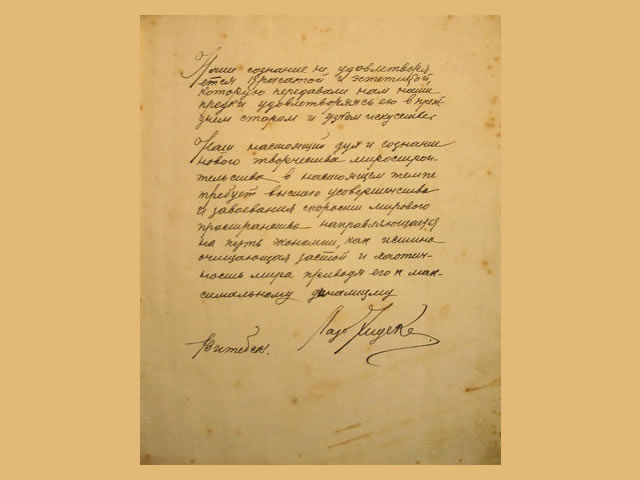 Наше сознание не удовлетворя
ется красотой и эстетикой,
которую передавали нам наши
предки удовлетворяясь ею в преж-
днем старом и узком искусстве.
Наш настоящий дух и сознание
нового творчества миростро-
ительства в настоящем темпе
требует высшего усовершенства
и завоевания скорости мирового
пространства направляющаяся
на путь экономии, как истино
очищающая застой и хаотич-
ность мира приводя его к мак-
симальному динамизму
Витебск. Лазарь Хидекель